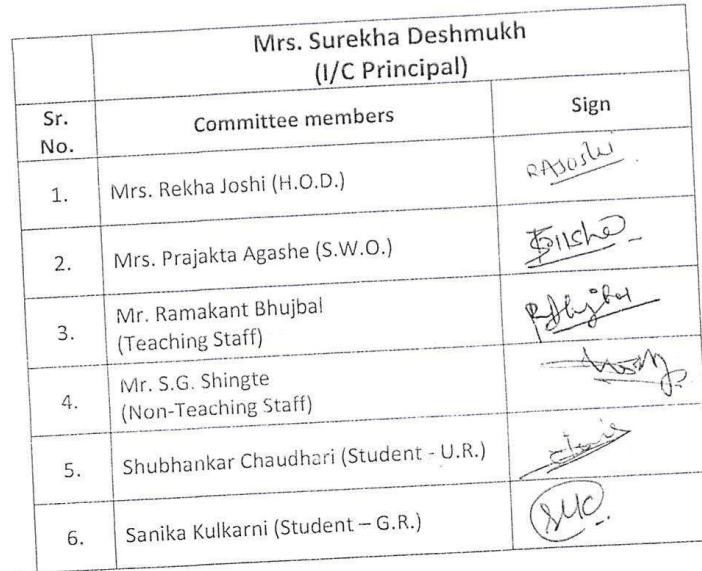 Mrs. Surekha Deshmukh
(I/C Principal)
Sr.
No.
Committee members
Sign
1.
Mrs. Rekha Joshi (H.O.D.)
RAJoshi
2.
Mrs. Prajakta Agashe (S.W.O.)
3.
Mr. Ramakant Bhujbal
(Teaching Staff)
4.
Mr. S.G. Shingte
(Non-Teaching Staff)
5.
Shubhankar Chaudhari (Student - U.R.)
6.
Sanika Kulkarni (Student – G.R.)